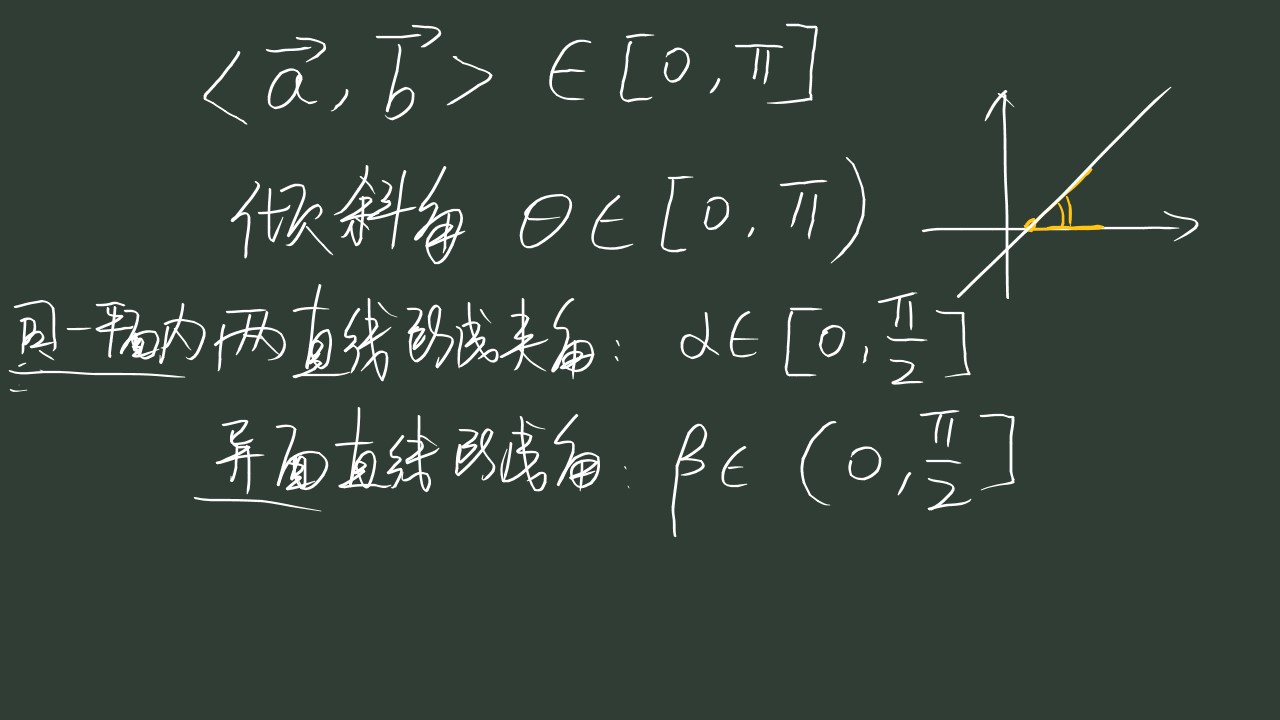 <\vec{a}, \vec{b}> ∈ [0, π]
倾斜角 θ ∈ [0, π)
同一平面内两直线所成夹角: α∈ [0, π/2]
异面直线所成角: β∈ (0, π/2]